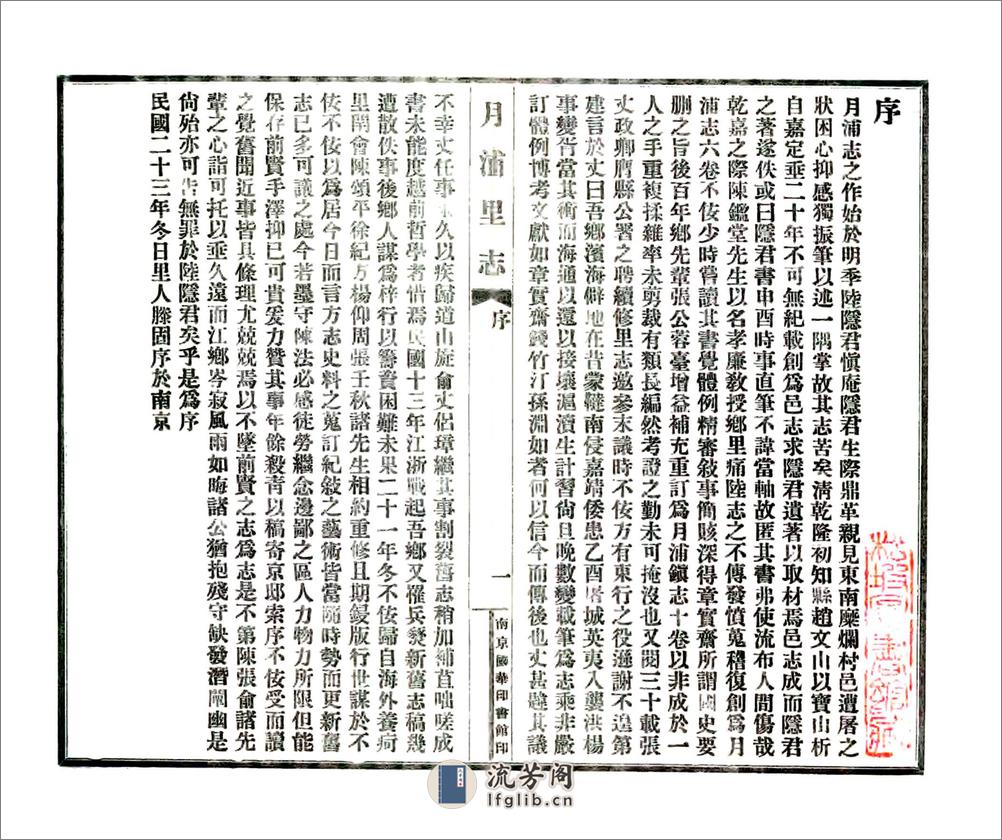 序
月浦志之作始於明季陸隱君愼庵隱君生際鼎革親見東南糜爛村邑遭屠之
狀困心抑感獨振筆以述一隅掌故其志苦矣淸乾隆初知縣趙文山以寶山析
自嘉定垂二十年不可無紀載創爲邑志求隱君遺著以取材焉邑志成而隱君
之著遂佚或曰隱君書申酉時事直筆不諱當軸故匿其書弗使流布人間傷哉
乾嘉之際陳鑑堂先生以名孝廉敎授鄉里痛陸志之不傳發憤蒐稽復創爲月
浦志六卷不佞少時嘗讀其書覺體例精審敍事簡賅深得章實齋所謂國史要
删之旨後百年鄉先輩張公蓉臺增益補充重訂爲月浦鎭志十卷以非成於一
人之手重複揉雜率未剪裁有類長編然考證之勤未可掩沒也又閱三十載張
丈政卿膺縣公署之聘續修里志邀參末議時不佞方有東行之役遜謝不遑第
建言於丈曰吾鄉濱海僻地在昔蒙韃南侵嘉靖倭患乙酉屠城英夷入襲洪楊
事變胥當其衝而海通以還以接壤滬瀆生計習尙旦晚數變載筆爲志乘非嚴
訂體例博考文獻如章實齋錢竹汀孫淵如者何以信今而傳後也丈甚韙其議
月浦里志
序
一
南京國華印書館印
不幸丈任事未久以疾歸道山旋俞丈侶璋繼其事割裂舊志稍加補苴咄嗟成
書未能度越前哲學者惜焉民國十三年江浙戰起吾鄉又罹兵燹新舊志稿幾
遭散佚事後鄉人謀爲梓行以籌資困難未果二十一年冬不佞歸自海外養疴
里閈會陳頌平徐紀方楊仰周張壬秋諸先生相約重修且期鋟版行世謀於不
佞不佞以爲居今日而言方志史料之蒐訂紀敍之藝術皆當隨時勢而更新舊
志已多可議之處今若墨守陳法必感徒勞繼念邊鄙之區人力物力所限但能
保存前賢手澤抑已可貴爰力贊其事年餘殺靑以稿寄京邸索序不佞受而讀
之覺舊聞近事皆具條理尤兢兢焉以不墜前賢之志爲志是不第陳張俞諸先
輩之心詣可托以垂久遠而江鄉岑寂風雨如晦諸公猶抱殘守缺發潛闡幽是
尙殆亦可告無罪於陸隱君矣乎是爲序
民國二十三年冬日里人滕固序於南京
流芳阁
lfglib.cn